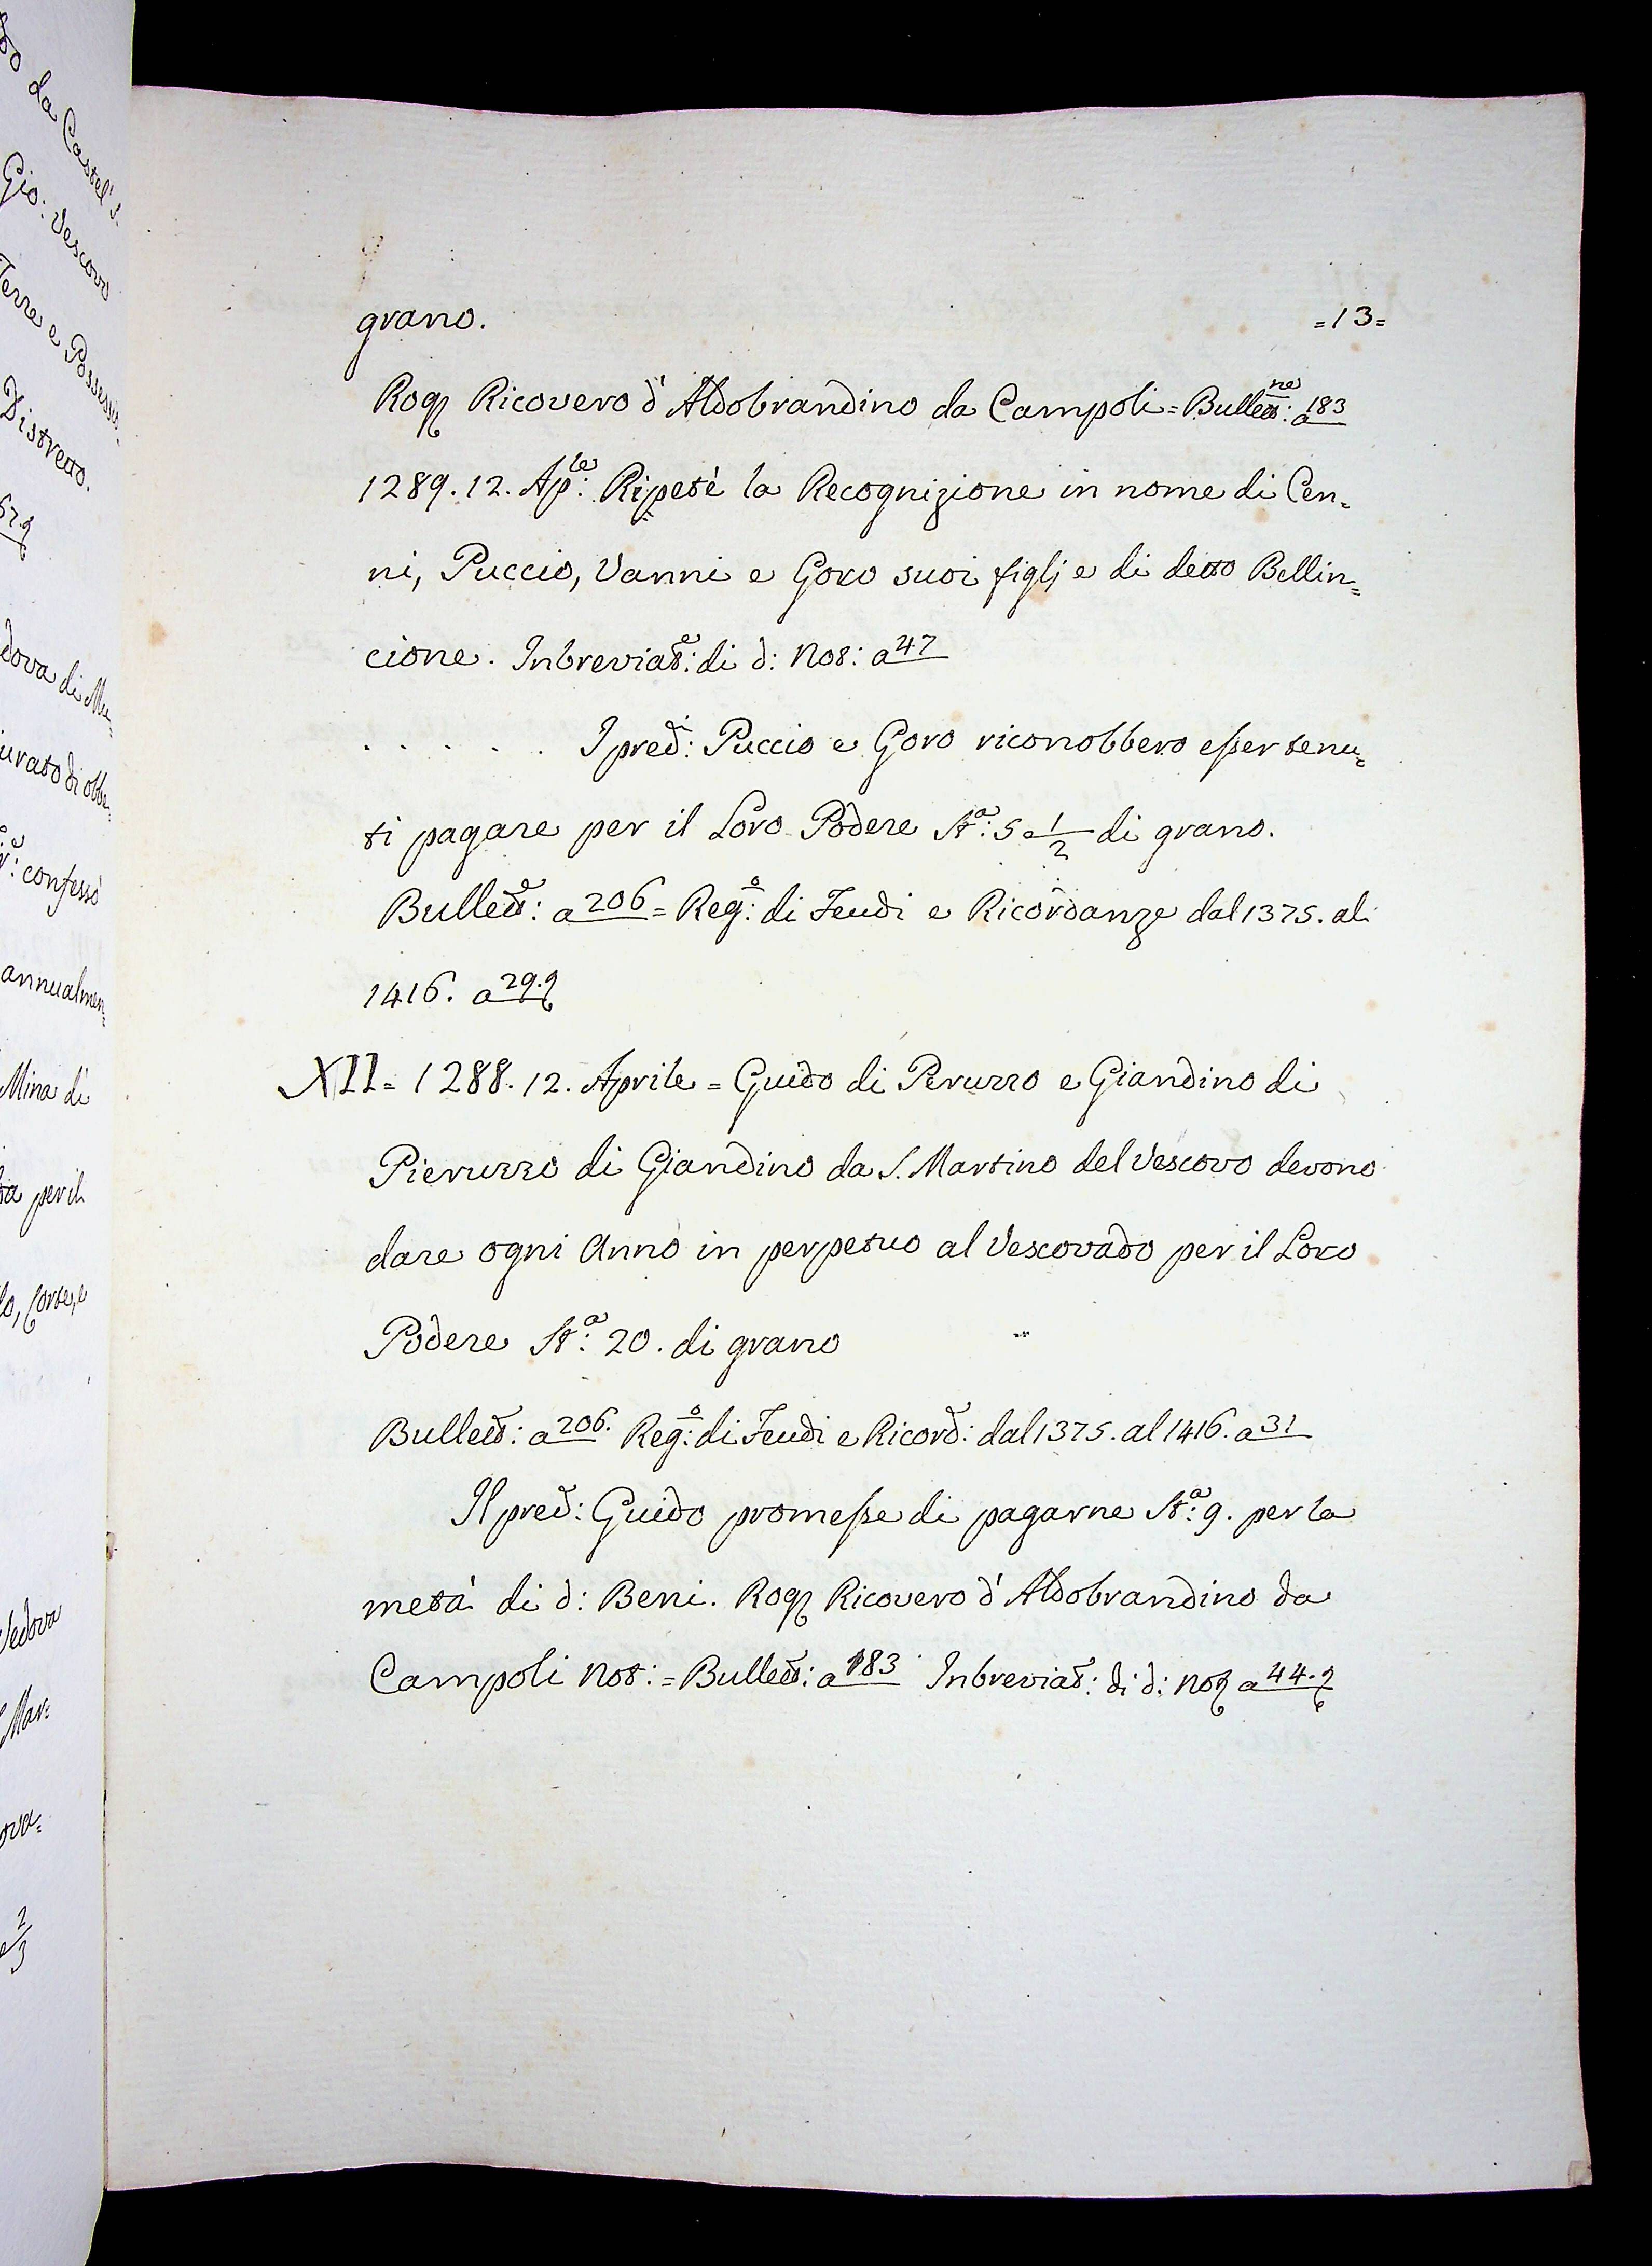 grano. =13=
Rog. Ricovero d'Aldobrandino da Campoli = Bullett:ne a 183
1289. 12. Ap:le Ripetè la Recognizione in nome di Cen=
ni, Puccio, Vanni e Goro suoi figlj e di detto Bellin=
cione. Inbreviat:e di d: Not: a 47
. . . . . . I pred:i Puccio e Goro riconobbero esser tenu=
ti pagare per il Loro Podere St:a 5 e 1/2 di grano.
Bullett:e a 206 = Reg:o di Feudi e Ricordanze dal 1375. al
1416. a 29.
XII = 1288. 12. Aprile = Guido di Peruzzo e Giandino di
Pieruzzo di Giandino da S. Martino del Vescovo devono
dare ogni Anno in perpetuo al Vescovado per il Loro
Podere St:a 20. di grano
Bullett: a 206. Reg:o di Feudi e Ricord: dal 1375. al 1416. a 31
Il pred: Guido promesse di pagarne St:a 9. per la
metà di d: Beni. Rog. Ricovero d'Aldobrandino da
Campoli Not: = Bullett: a 183 Inbreviat: di d: Not a 44.
da Castel S.
Gio: Vescovo
Terre e Possessi
Distretto.
dova di Mu=
urato di obbe=
confessò
annualmen=
Mina di
per il
Corte, e
Vedova
Mar=
ova=
2/3